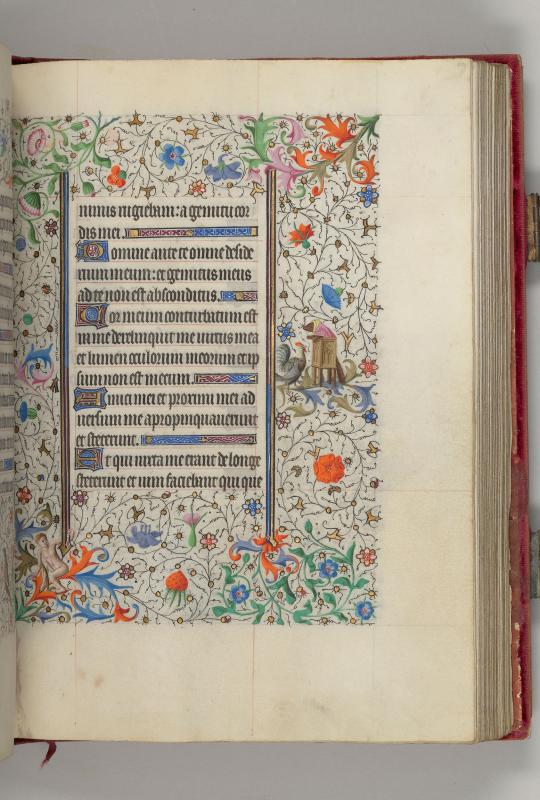 nimis rugiebam: a gemitu cor
dis mei.
Domine ante te omne deside
rium meum: et gemitus meus
a te non est absconditus.
Cor meum conturbatum est
in me dereliquit me virtus mea
et lumen oculorum meorum et ip
sum non est mecum.
Amici mei et proximi mei ad
versum me apropinquaverunt
et steterunt.
Et qui iuxta me erant de longe
steterunt et vim faciebant qui que